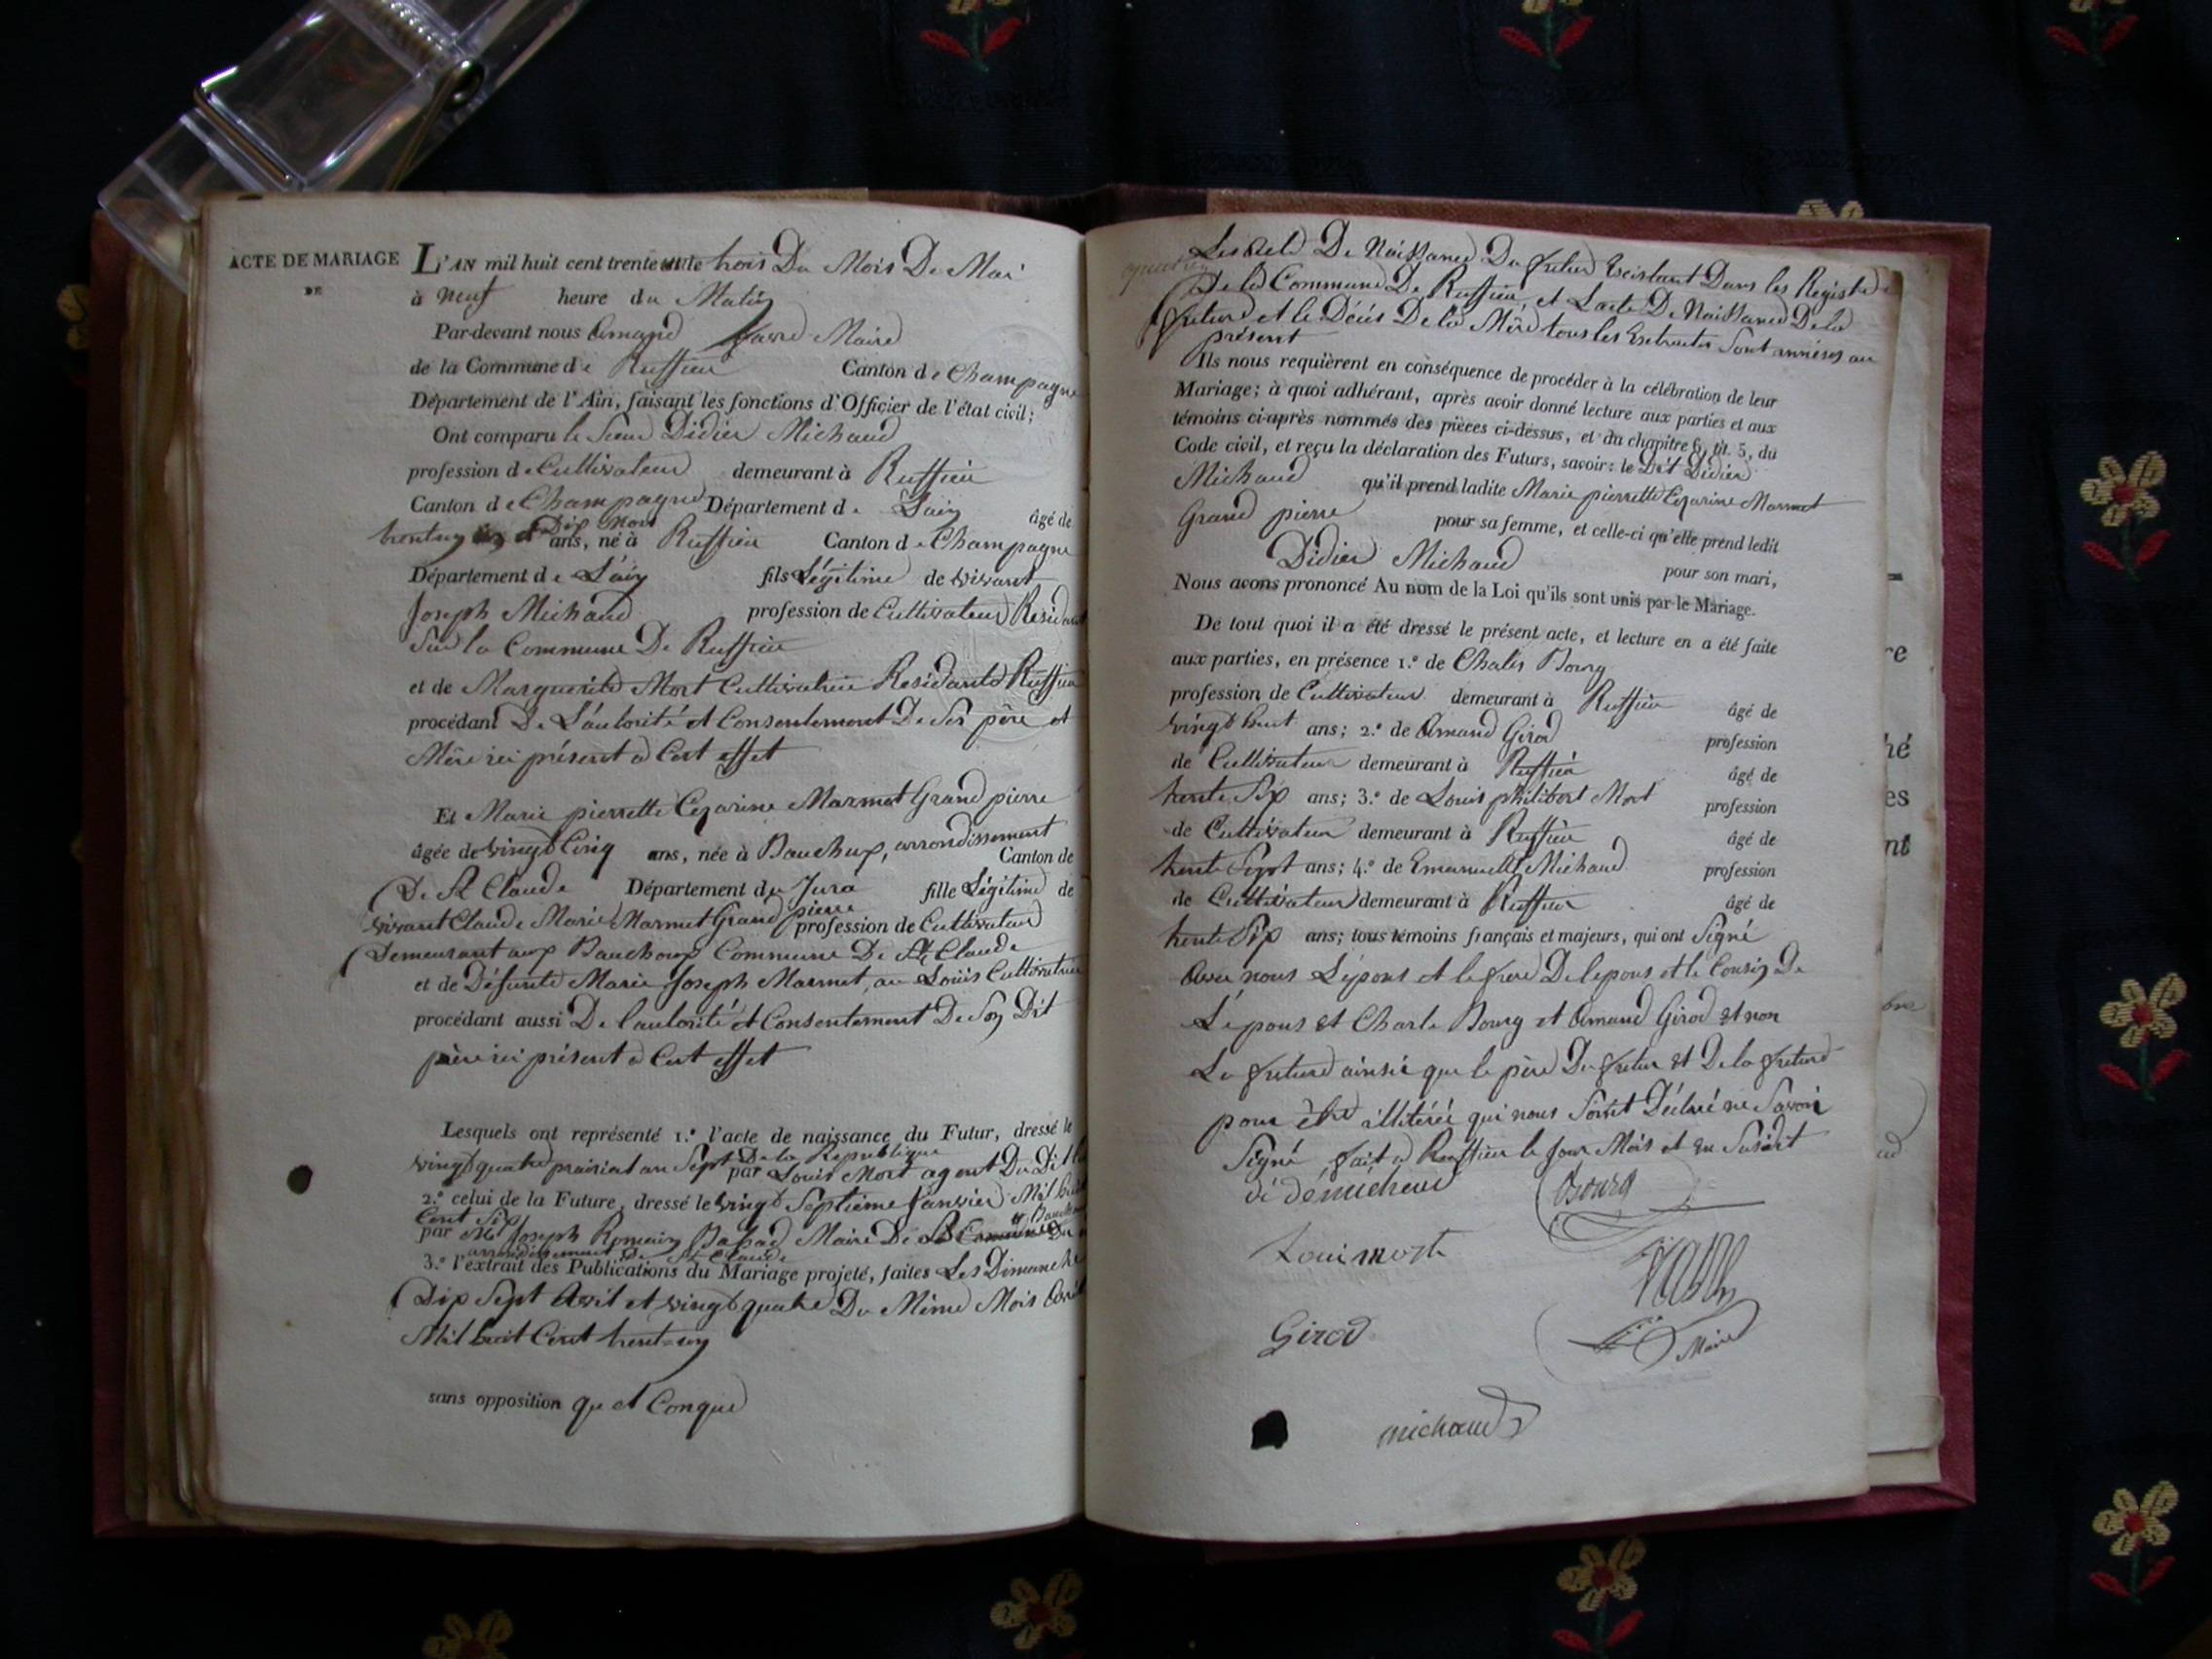 ACTE DE MARIAGE
DE
L'AN mil huit cent trente un le trois Du Mois De Mai
à neuf heure du Matin
Par-devant nous Amand favre Maire
de la Commune de Ruffieu Canton de Champagne
Département de l'Ain, faisant les fonctions d'Officier de l'état civil;
Ont comparu le Sieur Didier Michaud
profession de Cultivateur demeurant à Ruffieu
Canton de Champagne Département de Lain âgé de
trentun ans et Dix mois ans, né à Ruffieu Canton de Champagne
Département de L'ain fils Légitime de vivant
Joseph Michaud profession de Cultivateur Résidant
Sur la Commune De Ruffieu
et de Marguerite Mort Cultivatrice Residante Ruffieu
procédant De L'autorité et Consentement De Ses père et
Mère ici présent à Cert effet
Et Marie pierrette Cezarine Marmet Grand pierre
âgée de vingt Cinq ans, née à Bauchux, arrondissement Canton de
De St Claude Département du Jura fille Légitime de
vivant Claude Marie Marmet Grand pierre profession de Cultivateur
Demeurant aux Bauchoux Commune De St Claude
et de Défunte Marie Joseph Marmet, au Louis Cultivatrice
procédant aussi De l'autorité et Consentement De Son Dit
père ici présent à Cert effet
Lesquels ont représenté 1.º l'acte de naissance du Futur, dressé le
vingt quatre prairial an Sept De la République par Louis Mort agent Du Dit
2.º celui de la Future, dressé le vingt Septième Janvier Mil huit
Cent Six
par Mr Joseph Romain Maire De
arrondissement De St Claude
3.º l'extrait des Publications du Mariage projeté, faites Les Dimanche
Dix Sept Avril et vingt quatre Du Même Mois Avril
Mil huit Cent trent-un
sans opposition quel Conque
Les Acte De Naissance Du futur Existant Dans les Registre
De la Commune De Ruffieu, et Lacte De Naissance De la
future et le Décès De la Mère tous les Extraits Sont annéxés au
présent
Ils nous requièrent en conséquence de procéder à la célébration de leur
Mariage; à quoi adhérant, après avoir donné lecture aux parties et aux
témoins ci-après nommés des pièces ci-dessus, et du chapitre 6, tit. 5, du
Code civil, et reçu la déclaration des Futurs, savoir: le Dit Didier
Michaud qu'il prend ladite Marie pierrette Cezarine Marmet
Grand pierre pour sa femme, et celle-ci qu'elle prend ledit
Didier Michaud pour son mari,
Nous avons prononcé Au nom de la Loi qu'ils sont unis par le Mariage.
De tout quoi il a été dressé le présent acte, et lecture en a été faite
aux parties, en présence 1.º de Chales Bourg
profession de Cultivateur demeurant à Ruffieu âgé de
vingt huit ans; 2.º de Amand Girod profession
de Cultivateur demeurant à Ruffieu âgé de
trente Six ans; 3.º de Louis philibert Mort profession
de Cultivateur demeurant à Ruffieu âgé de
trente Sept ans; 4.º de Emanuelle Michaud profession
de Cultivateur demeurant à Ruffieu âgé de
trente Six ans; tous témoins français et majeurs, qui ont Signé
Avec nous L'épous et le frere De lepous et le Cousin De
L'epous et Charle Bourg et Amand Girod et non
La future ainsie que le père Du futur et De la future
pour être illitérée qui nous Sonts Déclaré ne Savoir
Signé, fait à Ruffieu le Jour Mois et an Susdit
didémicheud Bourg
Louimort
Girod Maire
michaud